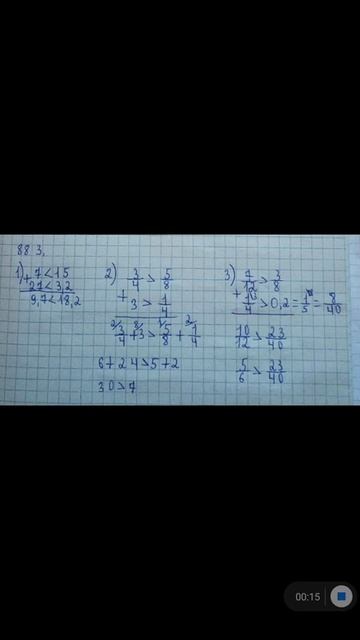 883,
1) 7<15
+ 2,7<3,2
9,7<18,2
2) 3/4 > 5/8
+ 3 > 1/4
2/ 3/4 + 8/ 3 > 1/ 5/8 + 2/ 1/4
6+24>5+2
30>7
3) 7/12 > 3/8
+ 1/4 > 0,2 = 1/5 = 8/40
10/12 > 23/40
5/6 > 23/40
00:15